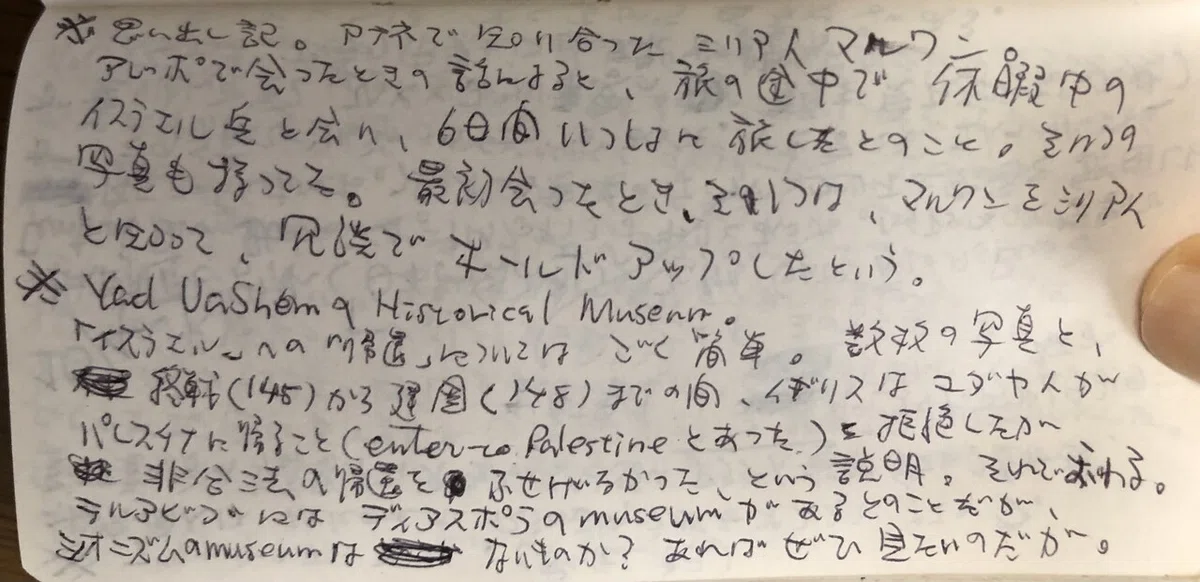 ※ 思い出し記。アテネで知り合ったシリア人マルワン。
アレッポで会ったときの話によると、旅の途中で休暇中の
イスラエル兵と会い、6日間いっしょに旅したとのこと。そいつの
写真も持ってた。最初会ったとき、そいつは、マルワンをシリア人
と知って、冗談でホールドアップしたという。
※ Yad VaShemのHistorical Museum。
「イスラエル」への「帰還」については ごく簡単。数枚の写真と、
終戦(1945)から建国(1948)までの間、イギリスはユダヤ人が
パレスチナに帰ること(enter to Palestineとあった)を拒絶したが
非合法の帰還をふせげなかった、という説明。それでおわる。
テルアビブにはディアスポラのmuseumがあるとのことだが、
シオニズムのmuseumは ないものか？あればぜひ見たいのだが。